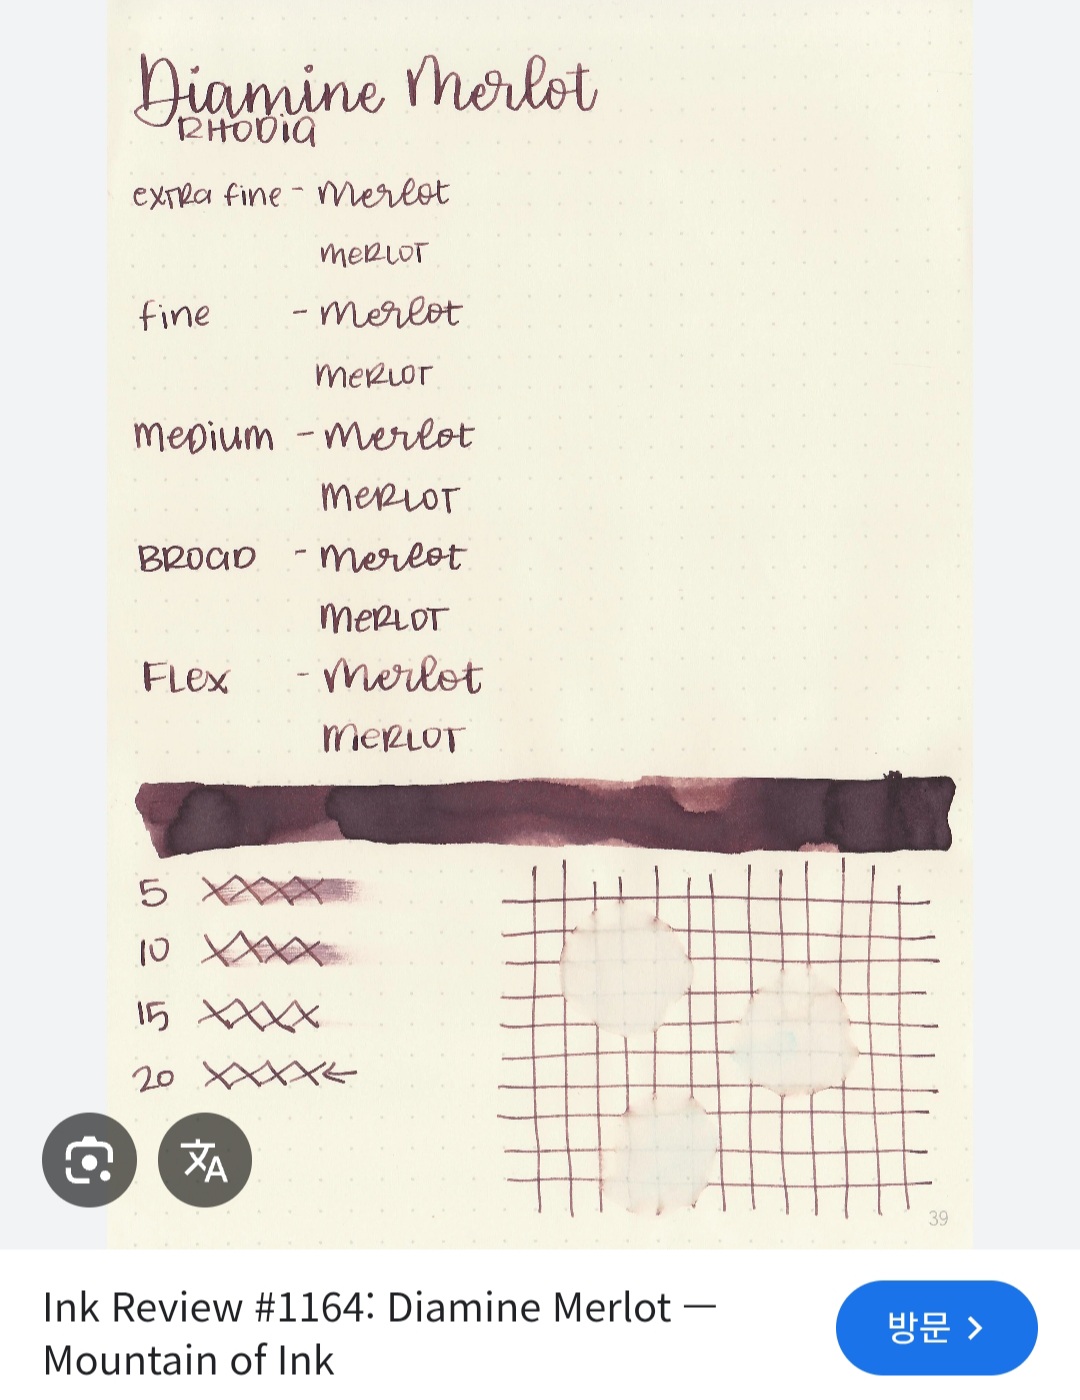 Diamine Merlot
RHODIA
extra fine - Merlot
MERLOT
fine - Merlot
MERLOT
MEDIUM - Merlot
MERLOT
BROAD - Merlot
MERLOT
FLEX - Merlot
MERLOT
5 XXXX
10 XXXX
15 XXXX
20 XXXX←
文A
39
Ink Review #1164: Diamine Merlot —
Mountain of Ink
방문 >